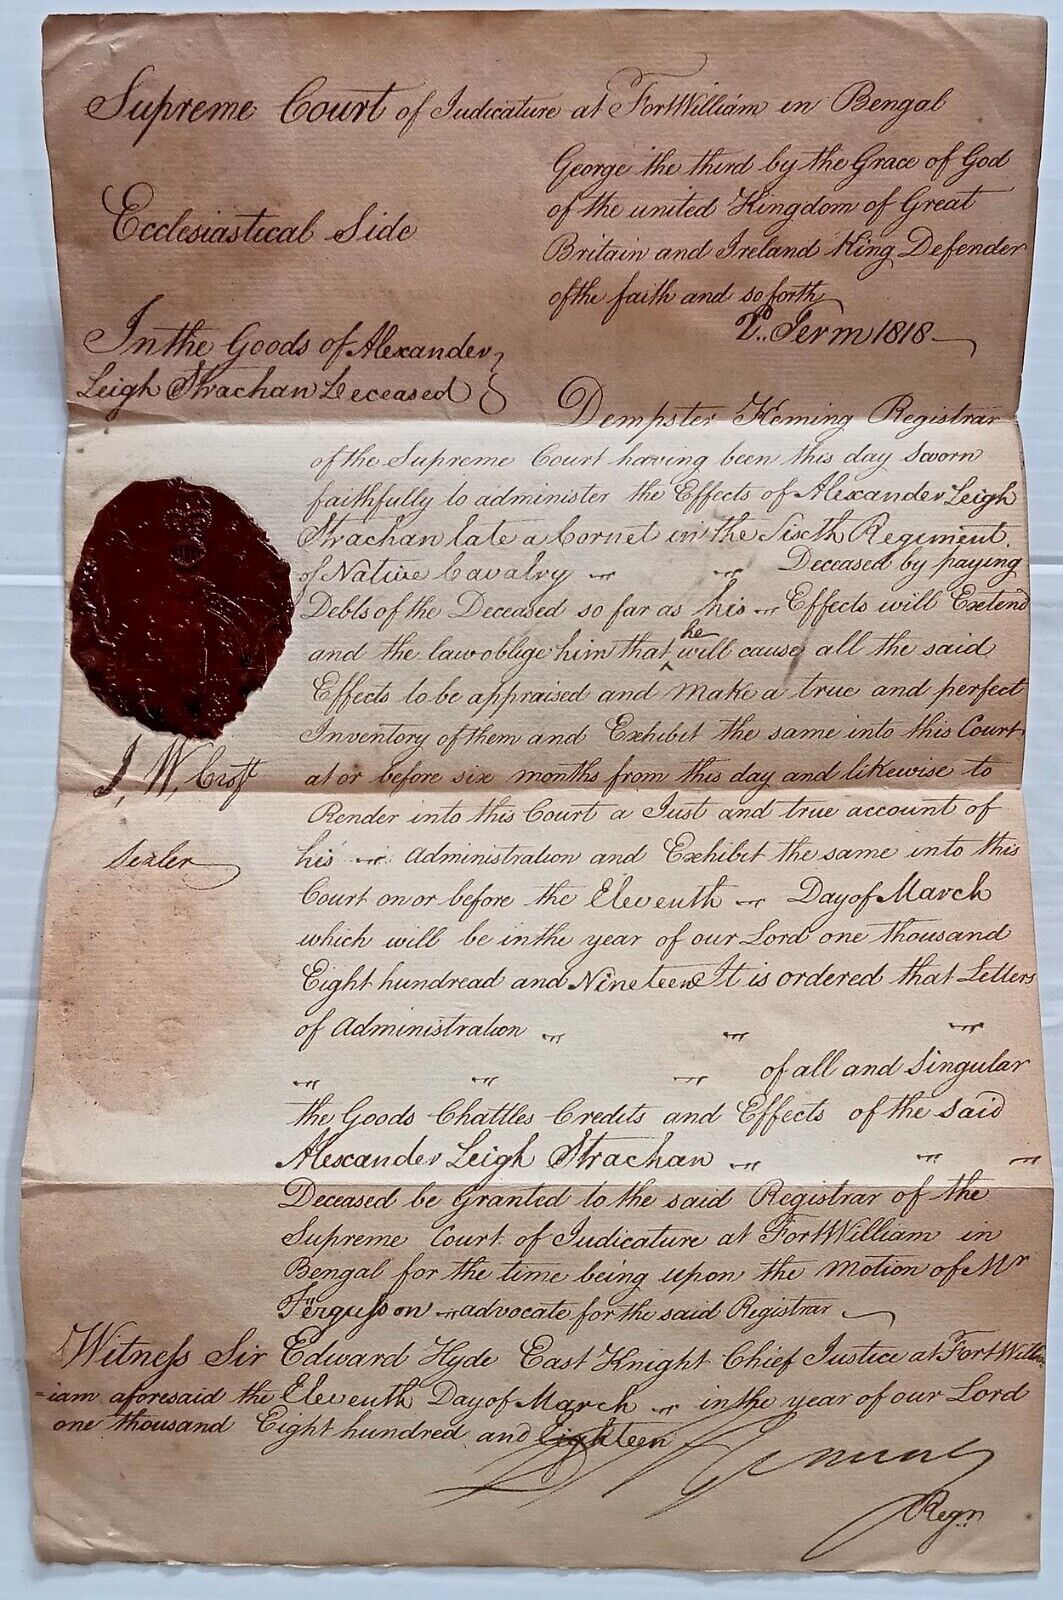 Supreme Court of Judicature at FortWilliam in Bengal
George the third by the Grace of God
of the united Kingdom of Great
Britain and Ireland King Defender
of the faith and so forth
Ecclesiastical Side
Term 1818
In the Goods of Alexander
Leigh Strachan Deceased
Dempster Heming Registrar
of the Supreme Court having been this day Sworn
faithfully to administer the Effects of Alexander Leigh
Strachan late a Cornet in the Sixth Regiment
of Native Cavalry Deceased by paying
Debts of the Deceased so far as his Effects will Extend
and the law oblige him that he will cause all the said
Effects to be appraised and make a true and perfect
Inventory of them and Exhibit the same into this Court
at or before six months from this day and likewise to
Render into this Court a Just and true account of
his Administration and Exhibit the same into this
Court on or before the Eleventh Day of March
which will be in the year of our Lord one thousand
Eight hundread and Nineteen It is ordered that Letters
of Administration
of all and Singular
the Goods Chattles Credits and Effects of the said
Alexander Leigh Strachan
Deceased be Granted to the said Registrar of the
Supreme Court of Judicature at FortWilliam in
Bengal for the time being upon the motion of Mr
Fergusson advocate for the said Registrar
J. W. Croft
Sealer
Witness Sir Edward Hyde East Knight Chief Justice at Fort Will
=iam aforesaid the Eleventh Day of March in the year of our Lord
one thousand Eight hundred and Eighteen
Regr.